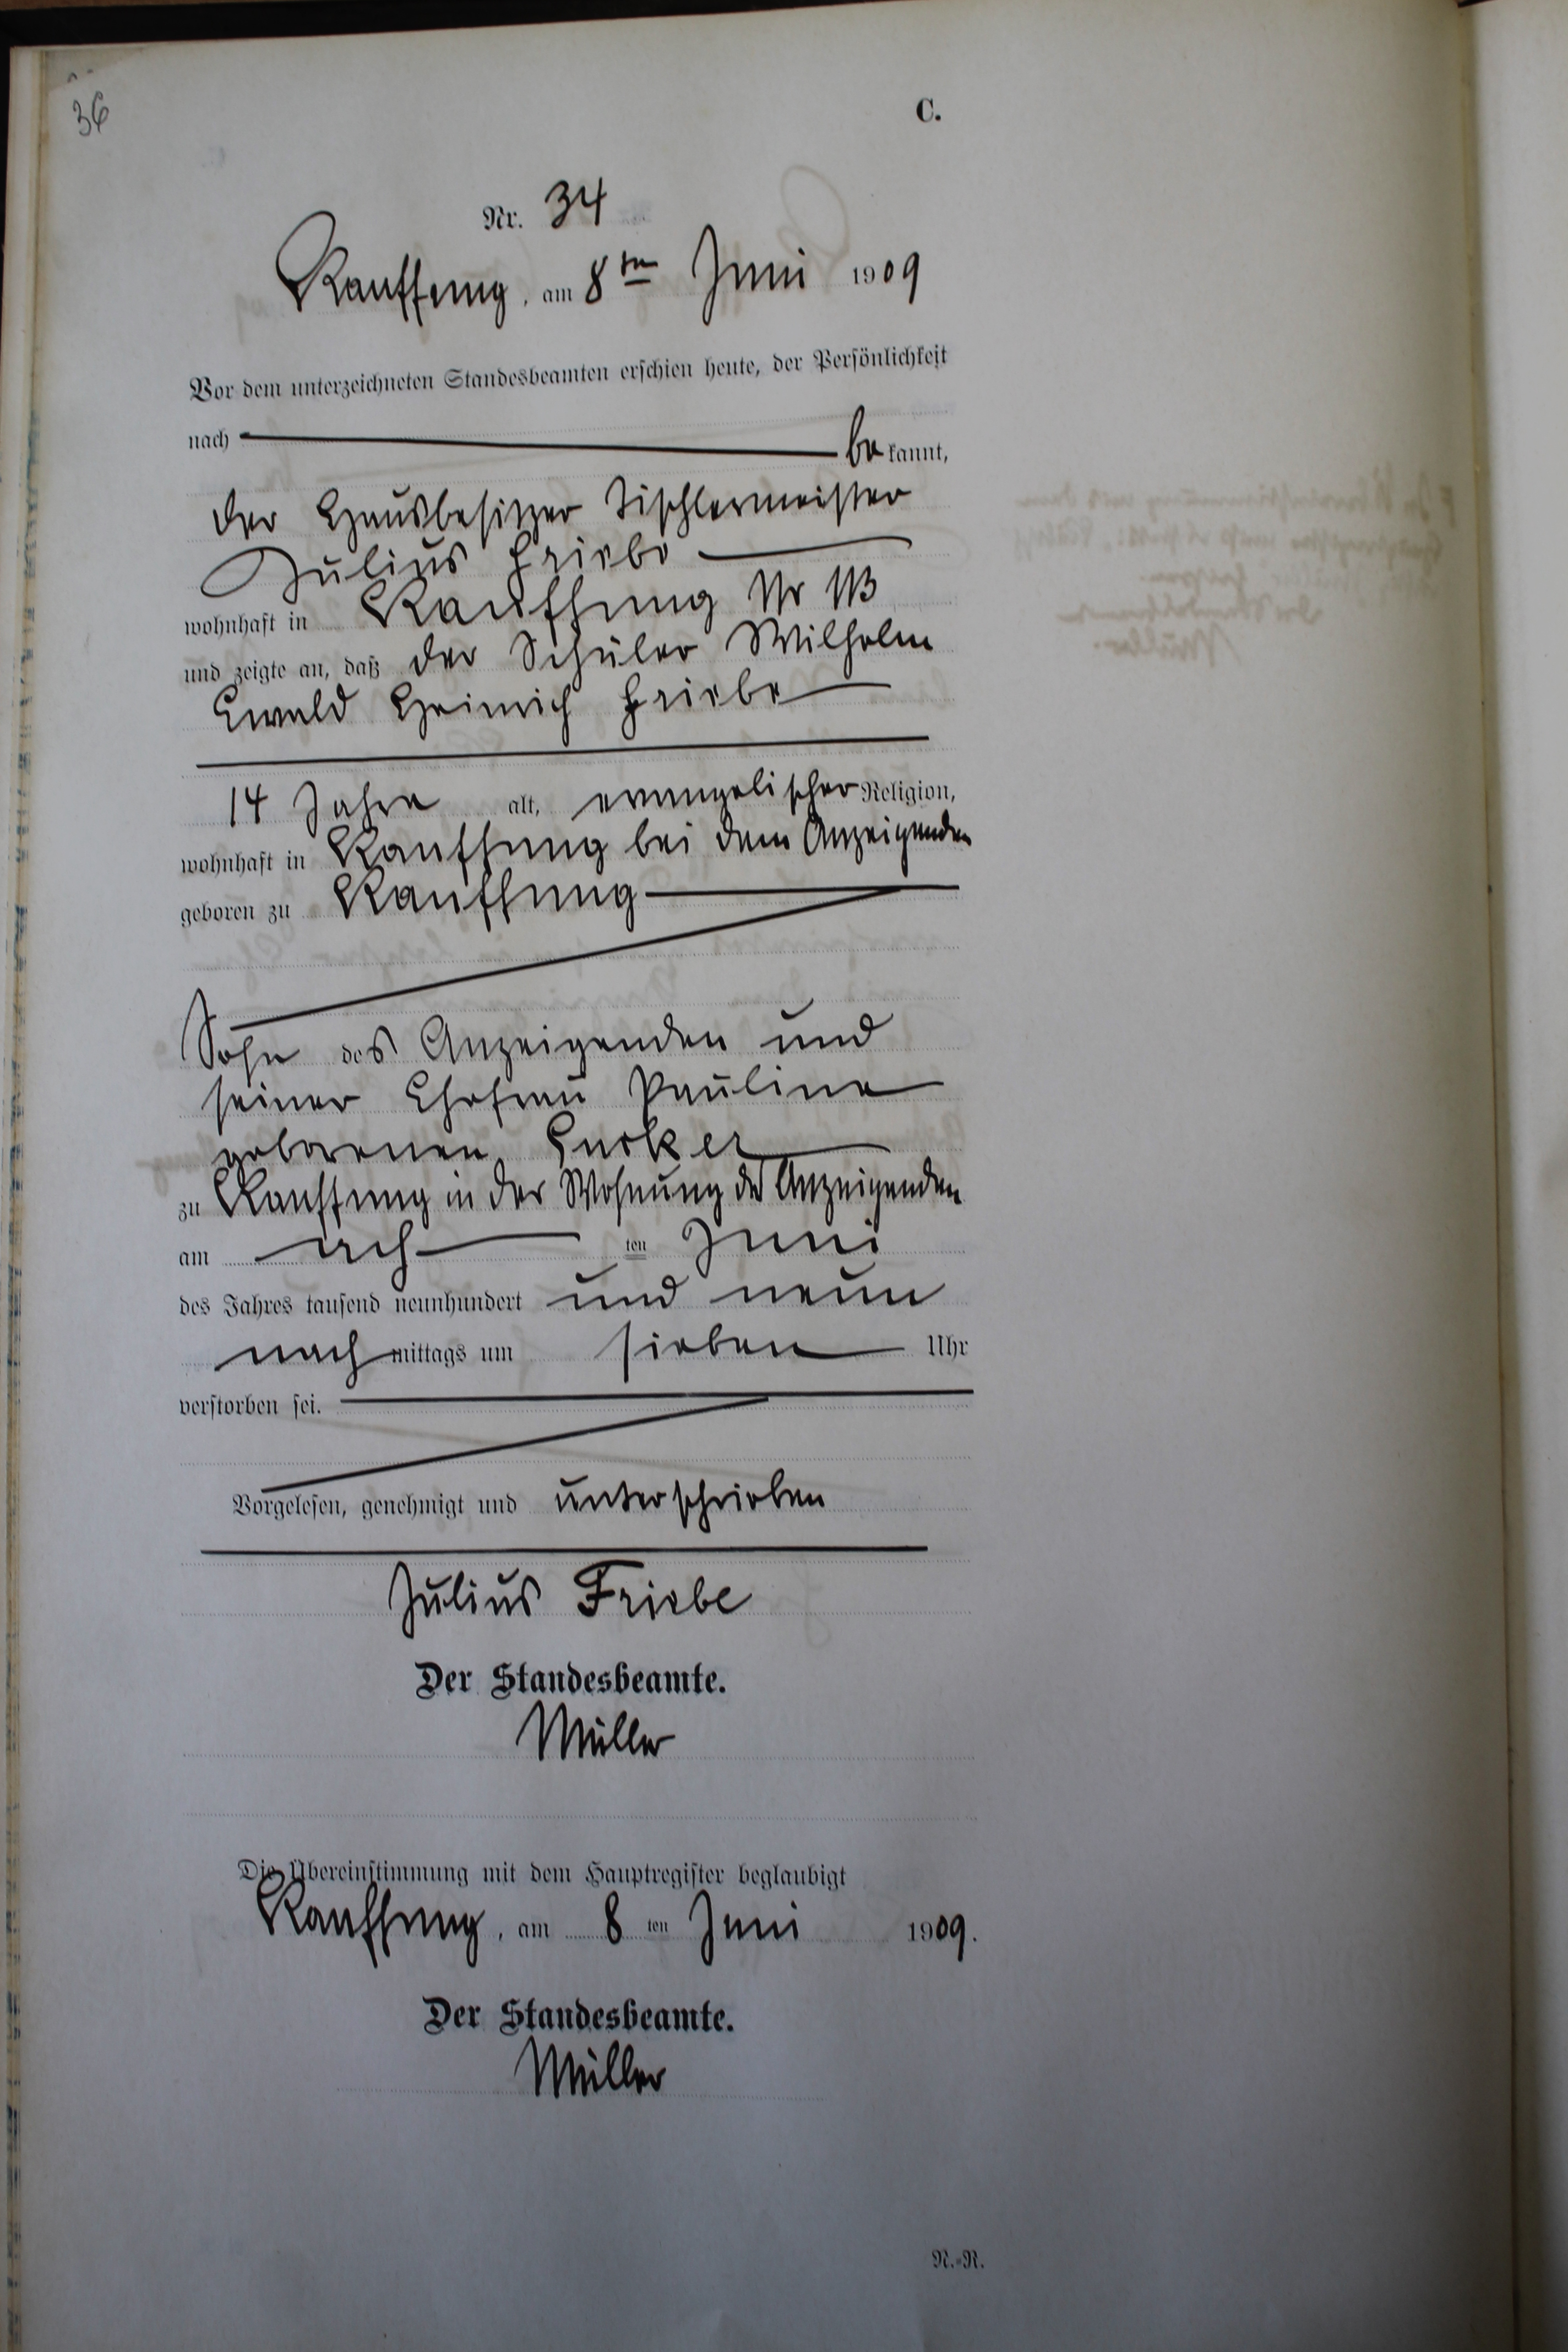 36
C.
Nr. 34
Kauffung, am 8ten Juni 1909
Vor dem unterzeichneten Standesbeamten erschien heute, der Persönlichkeit
nach bekannt,
der Hausbesitzer Tischlermeister
Julius Friebe
wohnhaft in Kauffung Nr 113
und zeigte an, daß der Schüler Wilhelm
Ewald Heinrich Friebe
14 Jahre alt, evangelischer Religion,
wohnhaft in Kauffung bei dem Anzeigenden
geboren zu Kauffung
Sohn des Anzeigenden und
seiner Ehefrau Pauline
geborenen
zu Kauffung in der Wohnung des Anzeigenden
am ach ten Juni
des Jahres tausend neunhundert und neun
nachmittags um sieben Uhr
verstorben sei.
Vorgelesen, genehmigt und unterschrieben
Julius Friebe
Der Standesbeamte.
Müller
Die Übereinstimmung mit dem Hauptregister beglaubigt
Kauffung, am 8 ten Juni 1909.
Der Standesbeamte.
Müller
N.-R.